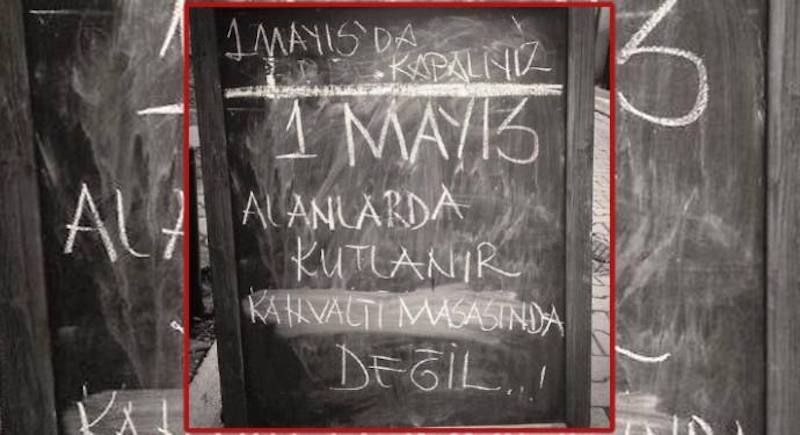 1 MAYIS'DA
KAPALIYIZ
1 MAYIS
ALANLARDA
KUTLANIR
KAHVALTI MASASINDA
DEĞİL...!